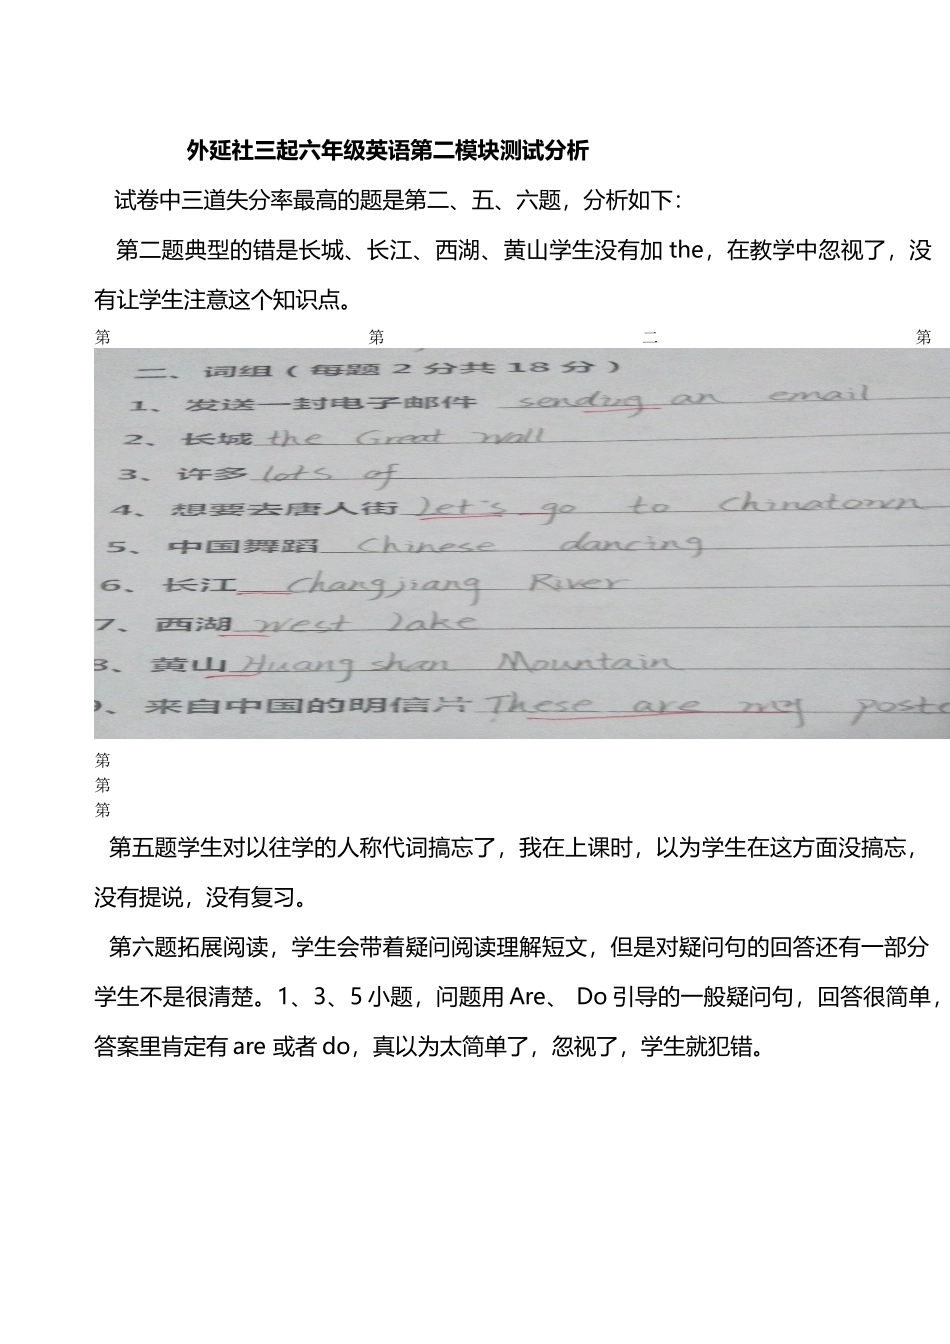 外延社三起六年级英语第二模块测试分析
试卷中三道失分率最高的题是第二、五、六题，分析如下：
第二题典型的错是长城、长江、西湖、黄山学生没有加 the，在教学中忽视了，没
有让学生注意这个知识点。
第 第 二 第
二、词组（每题 2 分共 18 分）
1、发送一封电子邮件 sending an email
2、长城 the Great Wall
3、许多 lots of
4、想要去唐人街 Let's go to Chinatown
5、中国舞蹈 Chinese dancing
6、长江 Changjiang River
7、西湖 West Lake
8、黄山 Huangshan Mountain
、来自中国的明信片 These are my postc
第
第
第
第五题学生对以往学的人称代词搞忘了，我在上课时，以为学生在这方面没搞忘，
没有提说，没有复习。
第六题拓展阅读，学生会带着疑问阅读理解短文，但是对疑问句的回答还有一部分
学生不是很清楚。1、3、5 小题，问题用 Are、 Do 引导的一般疑问句，回答很简单，
答案里肯定有 are 或者 do，真以为太简单了，忽视了，学生就犯错。